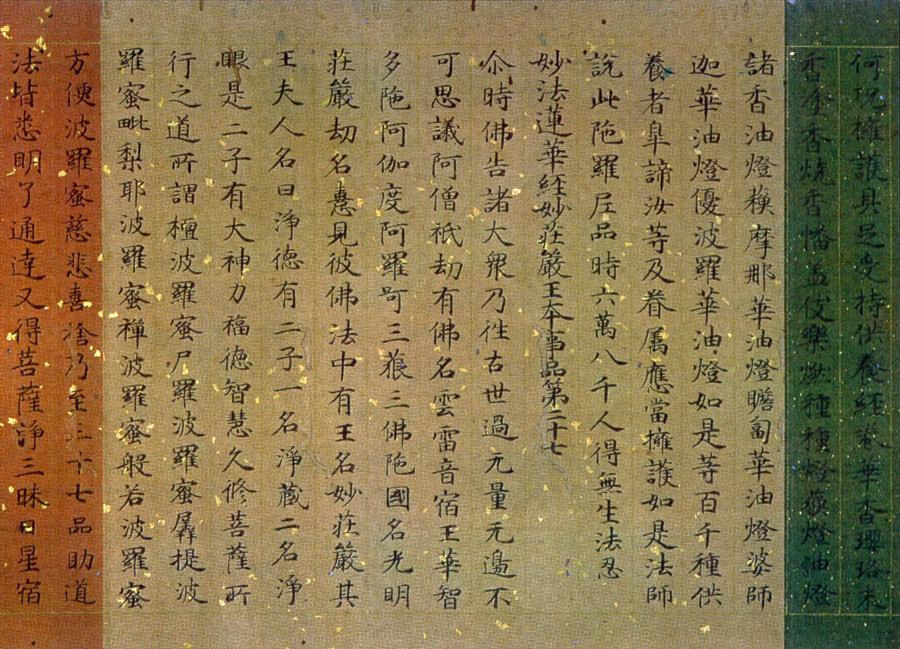 何况擁護具足受持供養経卷華香瓔珞末
香塗香燒香幡盖伎樂燃種種燈蘓燈油燈
諸香油燈蘓摩那華油燈瞻匐華油燈婆師
迦華油燈優波羅華油燈如是等百千種供
養者皐諦汝等及眷属應當擁護如是法師
說此陁羅尼品時六萬八千人得無生法忍
妙法蓮華経妙莊嚴王本事品第二十七
尒時佛告諸大衆乃往古世過无量无邊不
可思議阿僧祇劫有佛名雲雷音宿王華智
多陁阿伽度阿羅呵三藐三佛陁國名光明
莊嚴劫名憙見彼佛法中有王名妙莊嚴其
王夫人名曰淨德有二子一名淨蔵二名淨
眼是二子有大神力福德智慧久修菩薩所
行之道所謂檀波羅蜜尸羅波羅蜜羼提波
羅蜜毗梨耶波羅蜜禪波羅蜜般若波羅蜜
方便波羅蜜慈悲喜捨乃至三十七品助道
法皆悉明了通達又得菩薩淨三昧日星宿